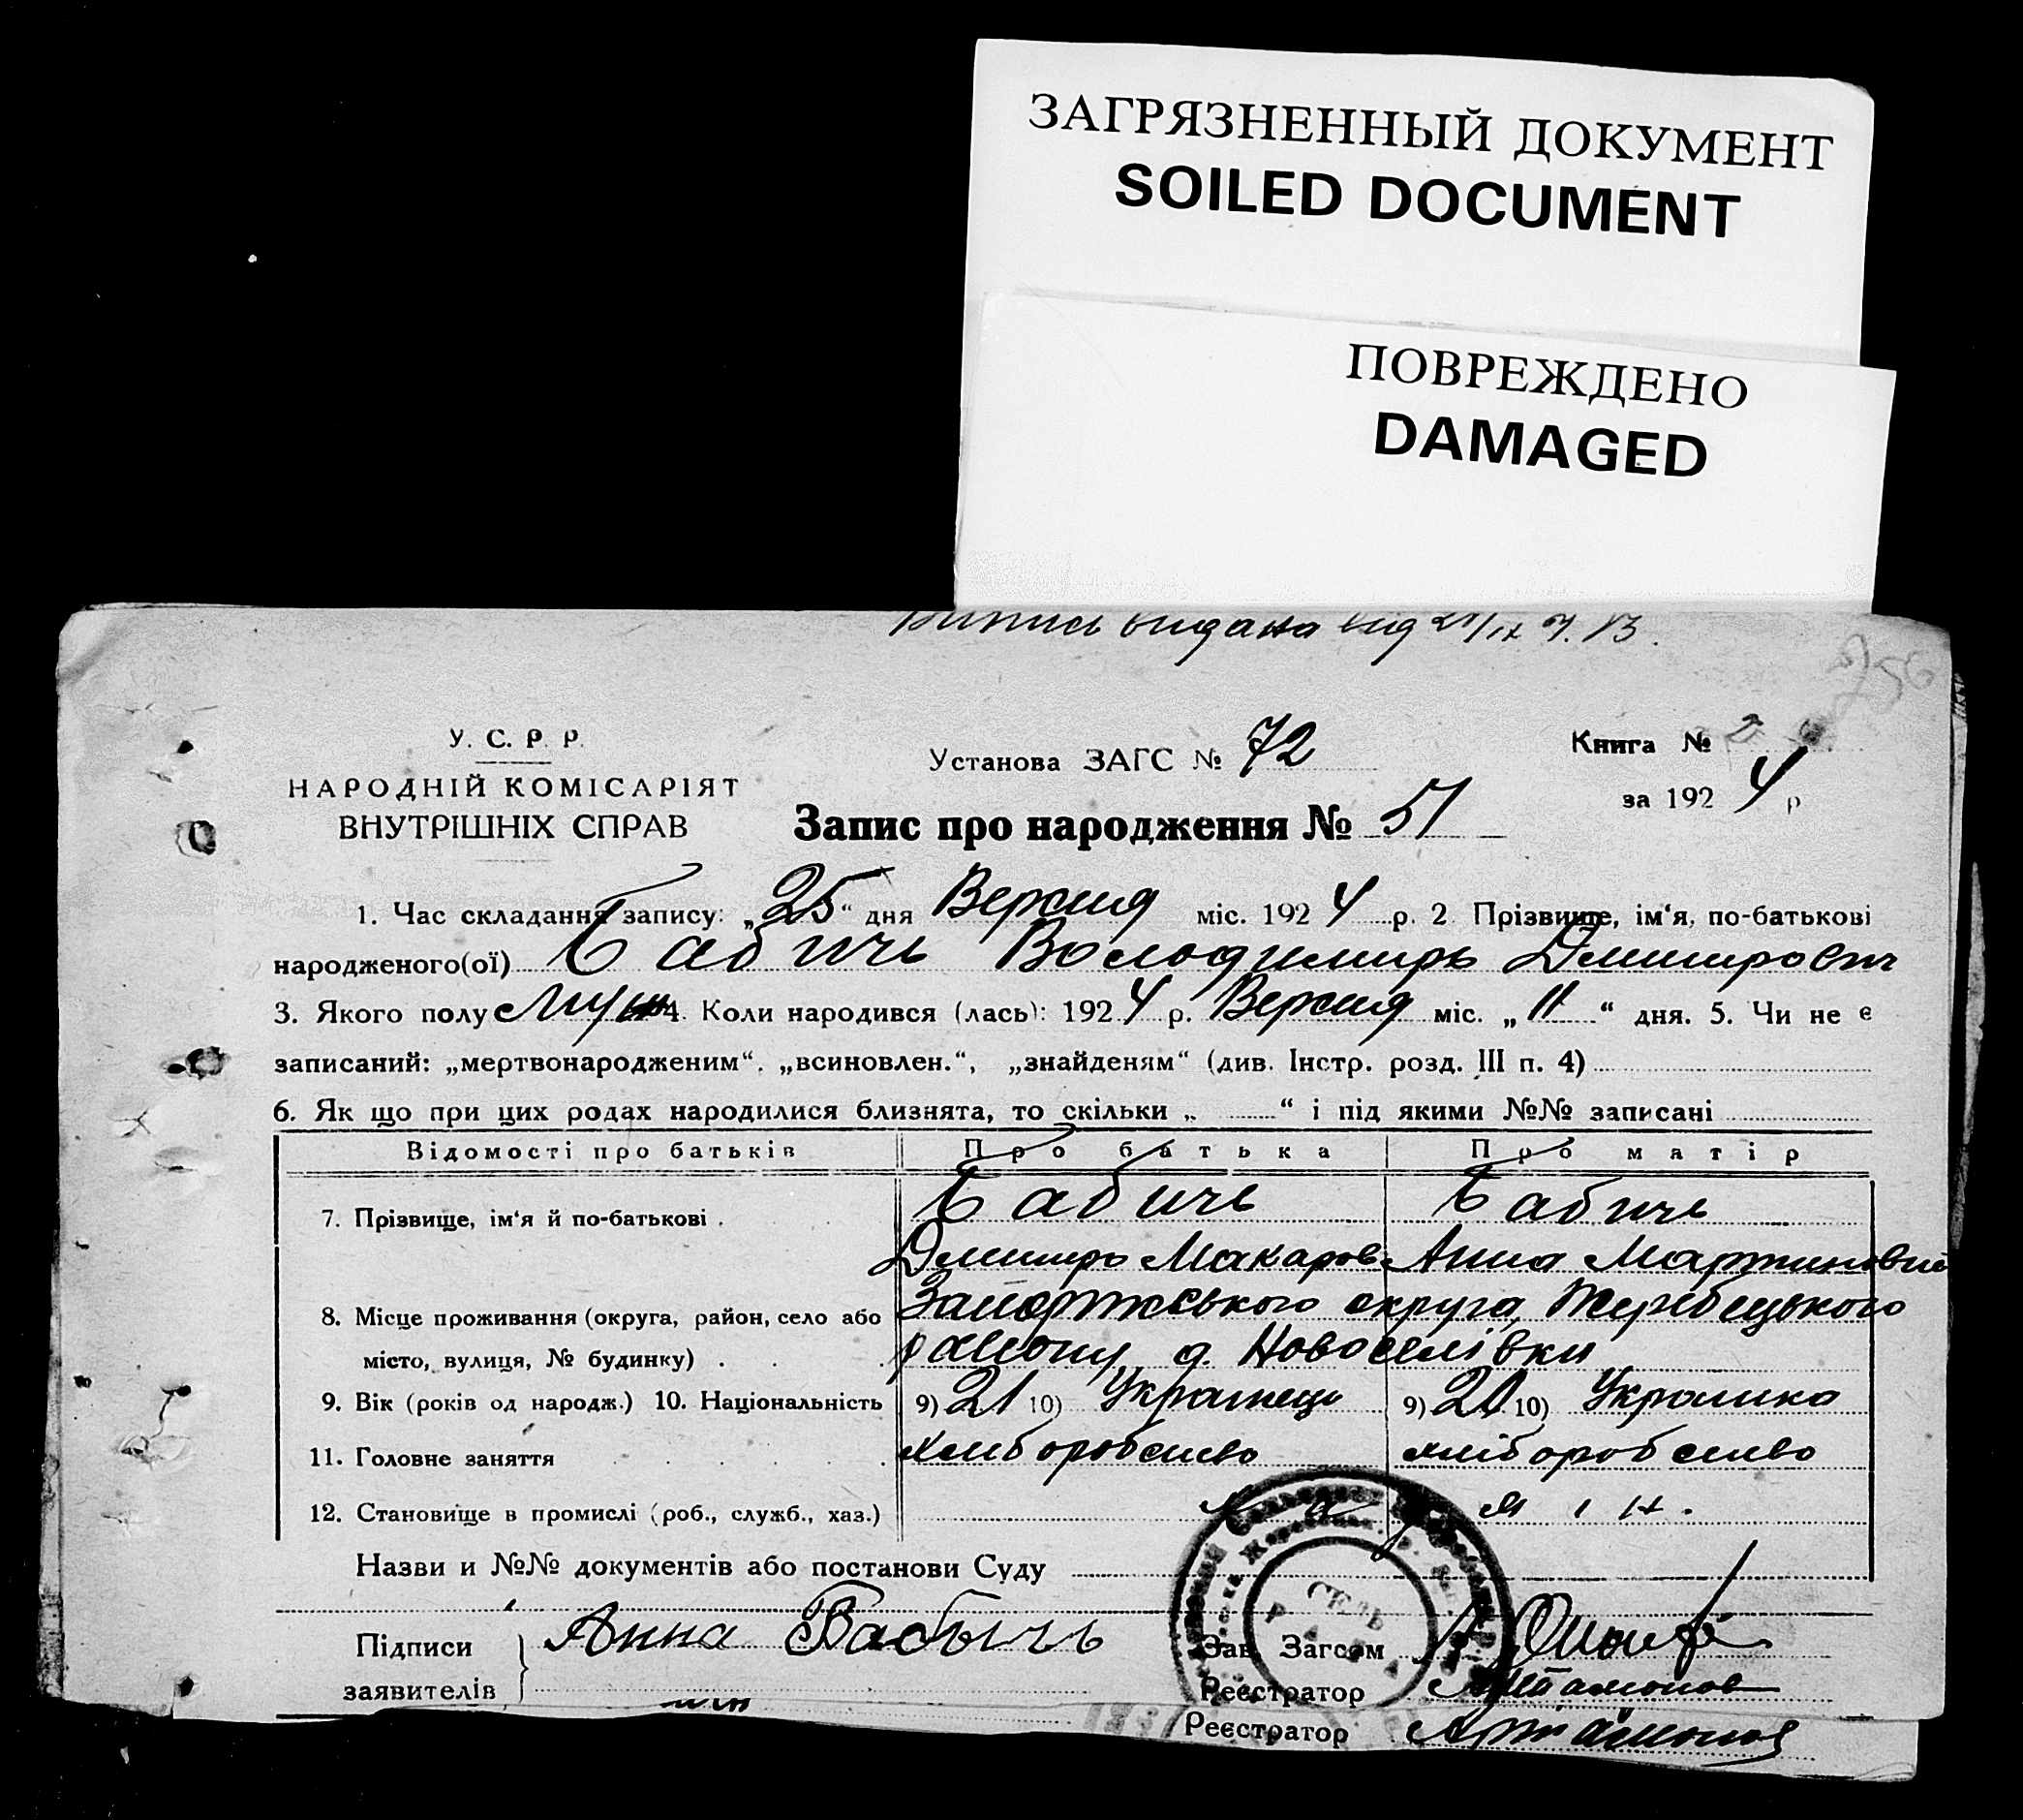 ЗАГРЯЗНЕННЫЙ ДОКУМЕНТ
SOILED DOCUMENT
ПОВРЕЖДЕНО
DAMAGED
видана від
У. С. Р. Р.
НАРОДНІЙ КОМІСАРІЯТ
ВНУТРІШНІХ СПРАВ
Установа ЗАГС № 72
Книга № 2
за 1924 р
Запис про народження № 51
1. Час складання запису: „25“ дня Вересня міс. 1924 р. 2. Прізвище, ім‘я, по-батькові
народженого(ої) Бабичь Володимиръ Дмитрович
3. Якого полу Муж 4. Коли народився (лась): 1924 р. Вересня міс. „11“ дня. 5. Чи не є
записаний: „мертвонародженим“. „всиновлен.“, „знайденям“ (див. Інстр. розд. III п. 4)
6. Як що при цих родах народилися близнята, то скільки „ “ і під якими №№ записані
Відомості про батьків Про батька Про матір
7. Прізвище, ім‘я й по-батькові . Бабичь Бабичь
Дмитро Макаров Анна Мартиновна
8. Місце проживання (округа, район, село або Запоріжського округа, Жеребецького
місто, вулиця, № будинку) . району д. Новоселівки
9. Вік (років од народж.) 10. Національність 9) 21 10) Українець 9) 20 10) Українка
11. Головне заняття хліборобство хліборобство
12. Становище в промислі (роб., служб., хаз.)
Назви и №№ документів або постанови Суду
Підписи
заявителів
Анна Бабычь
Зав. Загсом
Реєстратор Артамонов
Реєстратор Артамонов